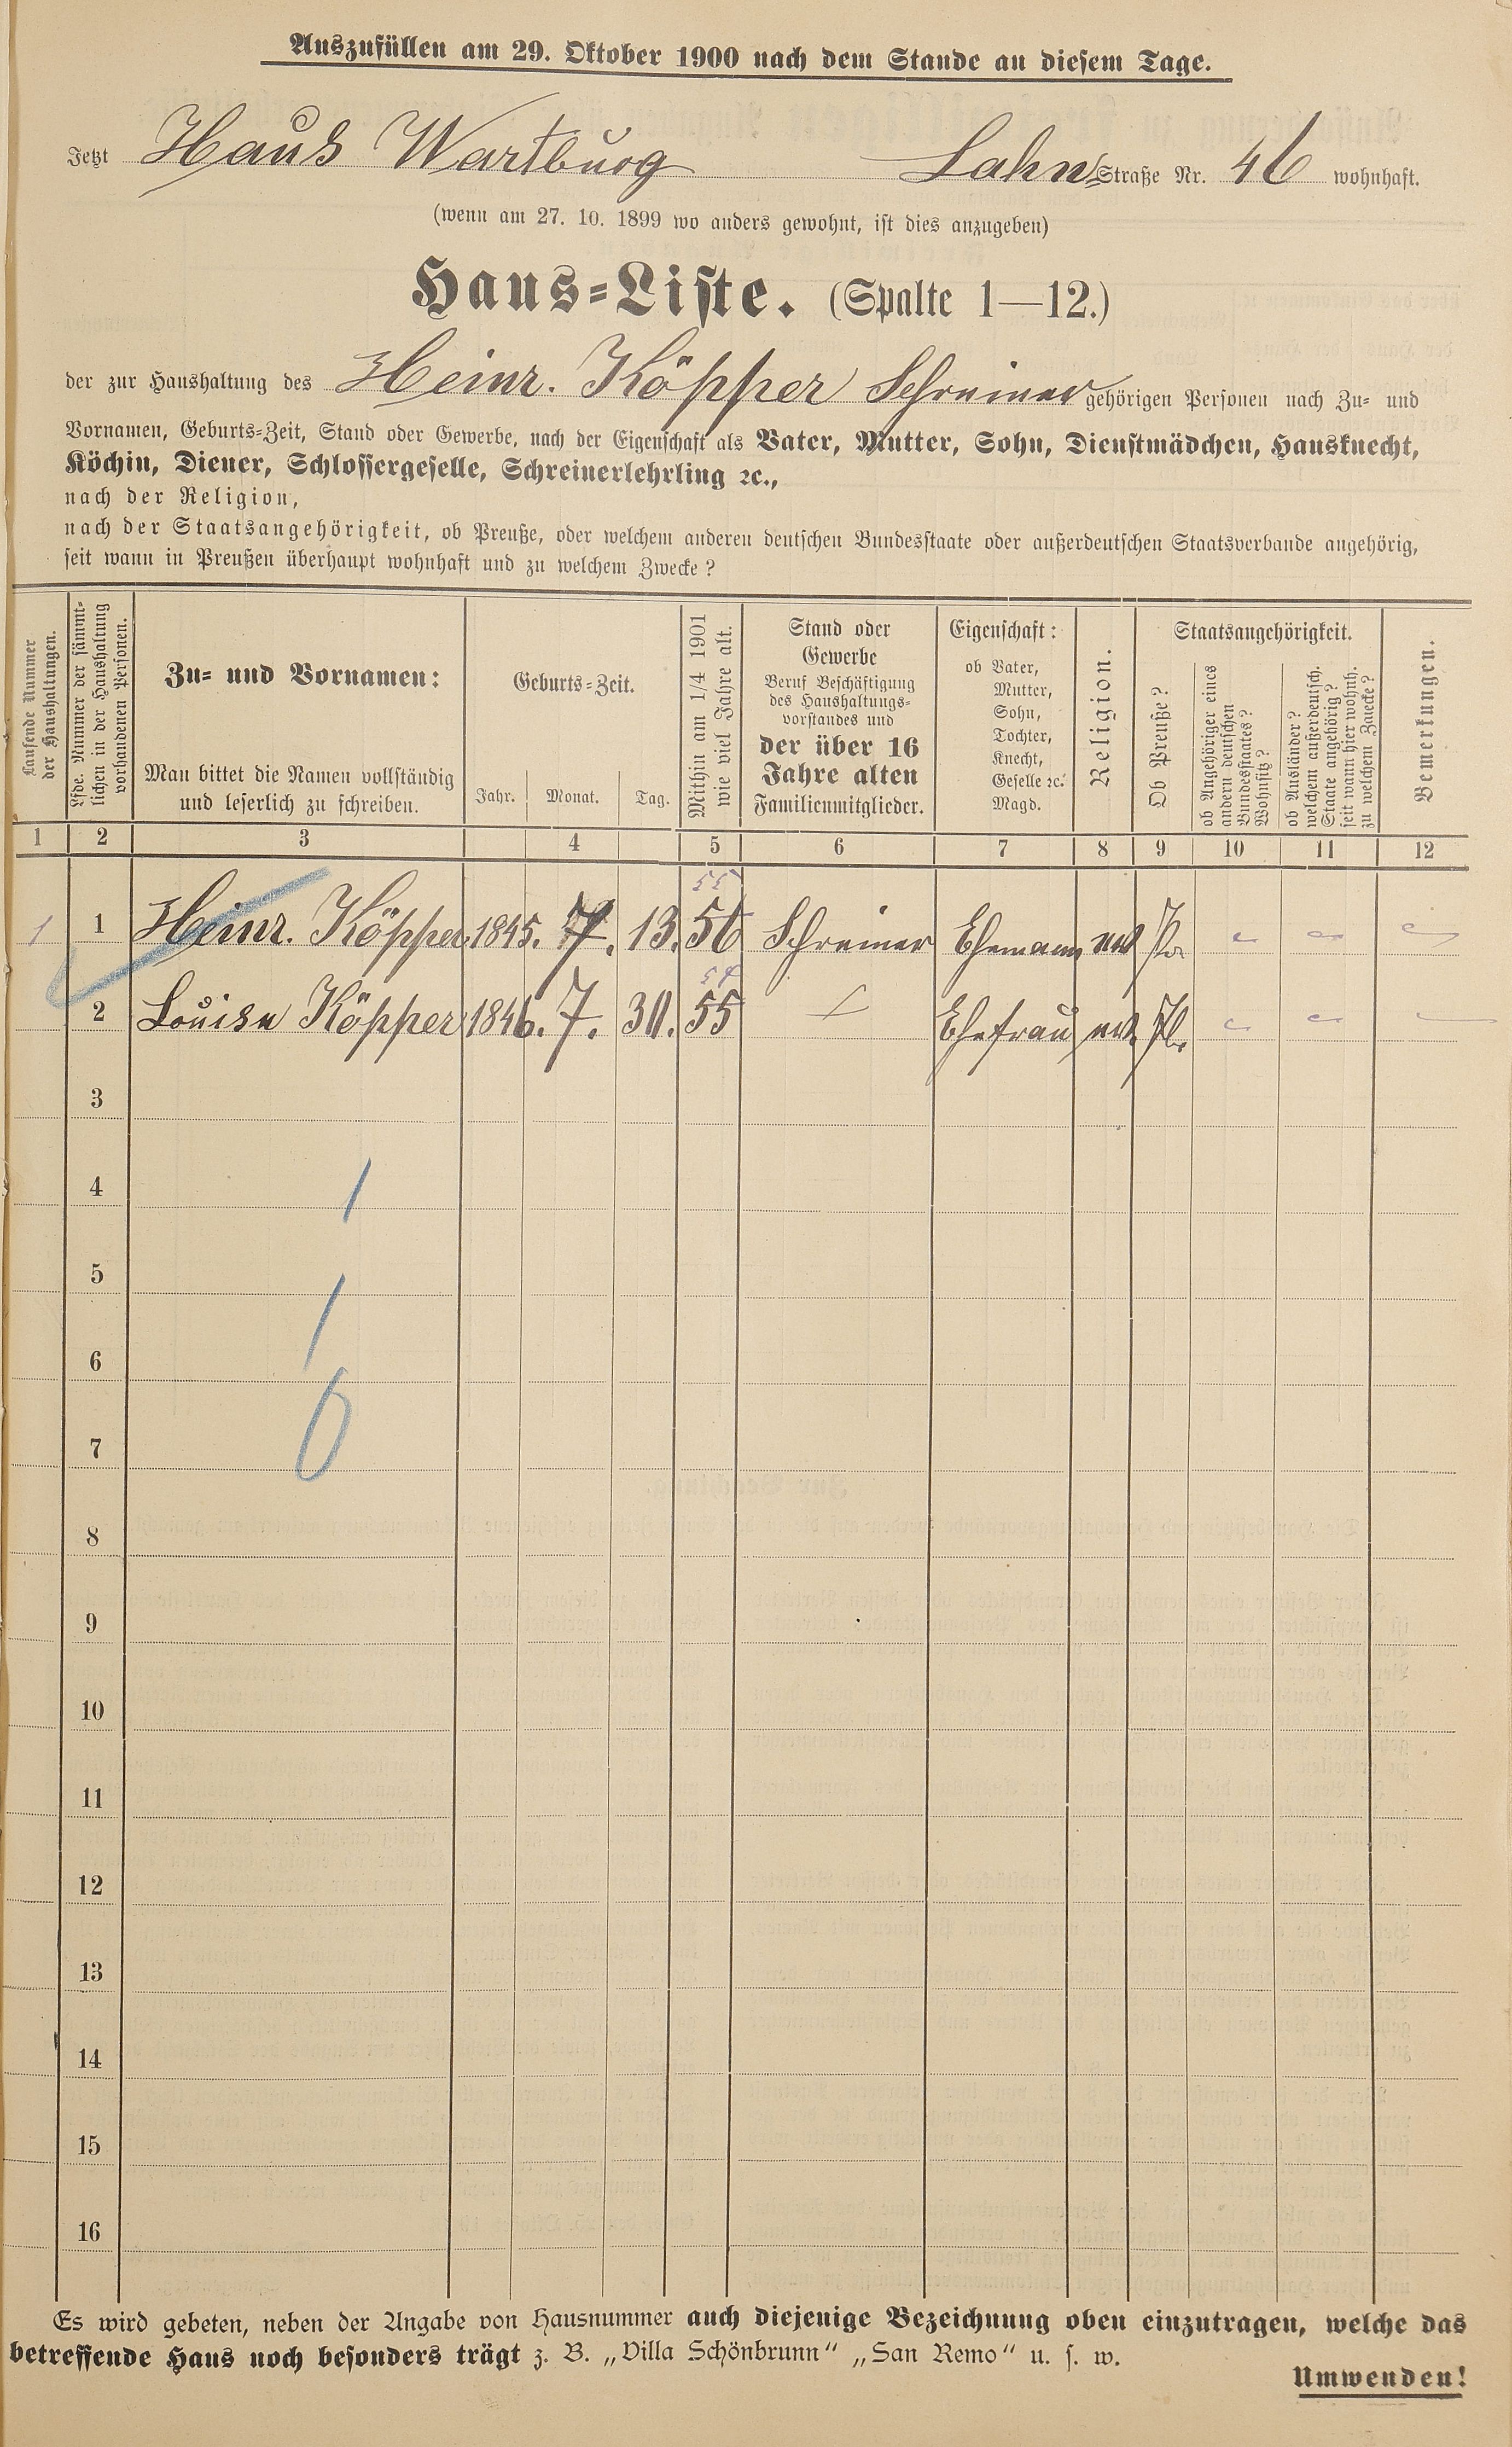 Auszufüllen am 29. Oktober 1900 nach dem Stande an diesem Tage.
Jetzt Haus Wartburg Lahn-Straße Nr. 46 wohnhaft.
(wenn am 27. 10. 1899 wo anders gewohnt, ist dies anzugeben)
Haus-Liste. (Spalte 1—12.)
der zur Haushaltung des Heinr. Köpper Schreiner gehörigen Personen nach Zu- und
Vornamen, Geburts-Zeit, Stand oder Gewerbe, nach der Eigenschaft als Vater, Mutter, Sohn, Dienstmädchen, Hausknecht,
Köchin, Diener, Schlossergeselle, Schreinerlehrling ꝛc.,
nach der Religion,
nach der Staatsangehörigkeit, ob Preuße, oder welchem anderen deutschen Bundesstaate oder außerdeutschen Staatsverbande angehörig,
seit wann in Preußen überhaupt wohnhaft und zu welchem Zwecke?
Laufende Nummer
der Haushaltungen.
Lfde. Nummer der sämmt-
lichen in der Haushaltung
vorhandenen Personen.
Zu- und Vornamen:
Man bittet die Namen vollständig
und leserlich zu schreiben.
Geburts-Zeit.
Jahr. Monat. Tag.
Mithin am 1/4 1901
wie viel Jahre alt.
Stand oder
Gewerbe
Beruf Beschäftigung
des Haushaltungs-
vorstandes und
der über 16
Jahre alten
Familienmitglieder.
Eigenschaft:
ob Vater,
Mutter,
Sohn,
Tochter,
Knecht,
Geselle ꝛc.
Magd.
Religion.
Staatsangehörigkeit.
Ob Preuße?
ob Angehöriger eines
andern deutschen
Bundesstaates?
Wohnsitz?
ob Ausländer?
welchem außerdeutsch.
Staate angehörig?
seit wann hier wohnh.
zu welchem Zwecke?
Bemerkungen.
1 2 3 4 5 6 7 8 9 10 11 12
55
1 1 Heinr. Köpper 1845. 7. 13. 56 Schreiner Ehemann ev. Pr. - - -
54
2 Louise Köpper 1846. 7. 30. 55 Ehefrau ev. Pr. - - -
3
4
1
5
1
6
0
7
8
9
10
11
12
13
14
15
16
Es wird gebeten, neben der Angabe von Hausnummer auch diejenige Bezeichnung oben einzutragen, welche das
betreffende Haus noch besonders trägt z. B. „Villa Schönbrunn“ „San Remo“ u. s. w.
Umwenden!